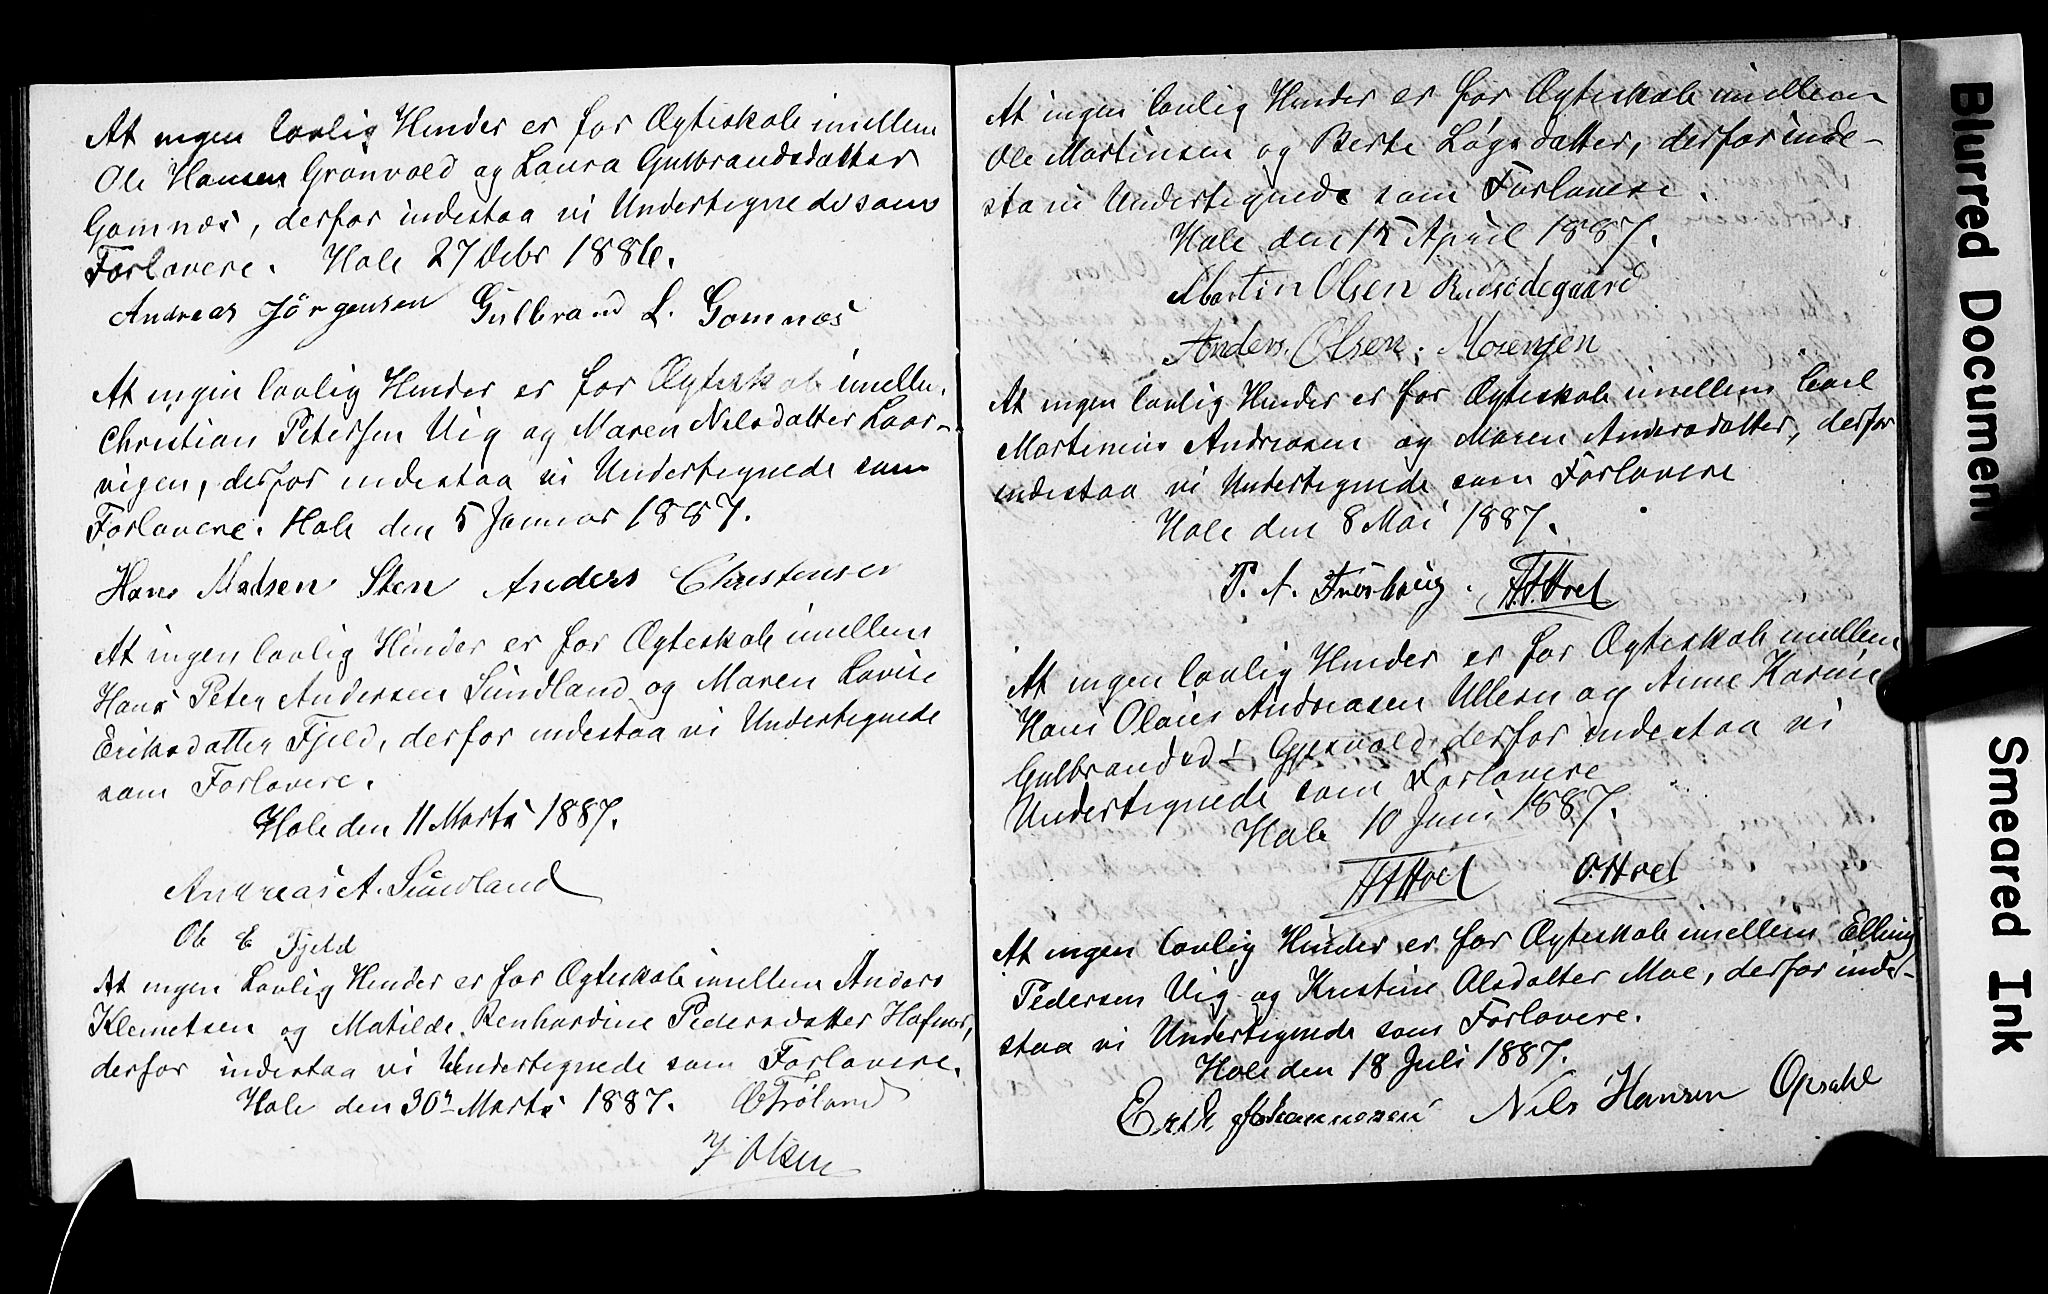 At ingen lovlig Hinder er for Ægteskab imellem
Ole Hansen Grönvold og Laura Gulbrandsdatter
Gomnæs, derfor indestaa vi Undertegnede som
Forlovere. Hole 27 Debr 1886.
Andreas Jörgensen Gulbrand L. Gomnæs
At ingen lovlig Hinder er for Ægteskab imellem
Christian Petersen Vig og Maren Nilsdatter Laar-
vigen, derfor indestaa vi Undertegnede som
Forlovere. Hole den 5 Januar 1887.
Hans Madsen Sten Anders Christensen
At ingen lovlig Hinder er for Ægteskab imellem
Hans Peter Andersen Sundland og Maren Lovise
Eriksdatter Fjeld, derfor indestaa vi Undertegnede
som Forlovere.
Hole den 11 Marts 1887.
Andreas A. Sundland
Ole E Fjeld
At ingen Lovlig Hinder er for Ægteskab imellem Anders
Klemetsen og Matilde Renhardine Pedersdatter Hafnor,
derfor indestaa vi Undertegnede som Forlovere.
Hole den 30te Marts 1887. O Frøland
J Olsen
At ingen lovlig Hinder er for Ægteskab imellem
Ole Martinsen og Berte Løgsdatter, derfor inde-
sta vi Undertegnede som Forlovere.
Hole den 12 April 1887.
Martin Olsen Rudsødegaard
Anders. Olsen. Mosengen
At ingen lovlig Hinder er for Ægteskab imellem Carl
Martinius Andreasen og Maren Andersdatter, derfor
indestaa vi Undertegnede som Forlovere
Hole den 8 Mai 1887.
P. A. Frøshaug. H.H.Hoel
At ingen lovlig Hinder er for Ægteskab imellem
Hans Olaus Andreasen Ullern og Anne Karine
Gulbrandsd. Gjesvold, derfor indestaa vi
Undertegnede som Forlovere
Hole 10 Juni 1887.
HHHoel O.Hoel
At ingen lovlig Hinder er for Ægteskab imellem Elling
Pedersen Vig og Kristine Olsdatter Moe, derfor inde-
staa vi Undertegnede som Forlovere.
Hole den 18 Juli 1887.
Erik Johannesen Nils Hansen Opsahl
Blurred Document
Smeared Ink